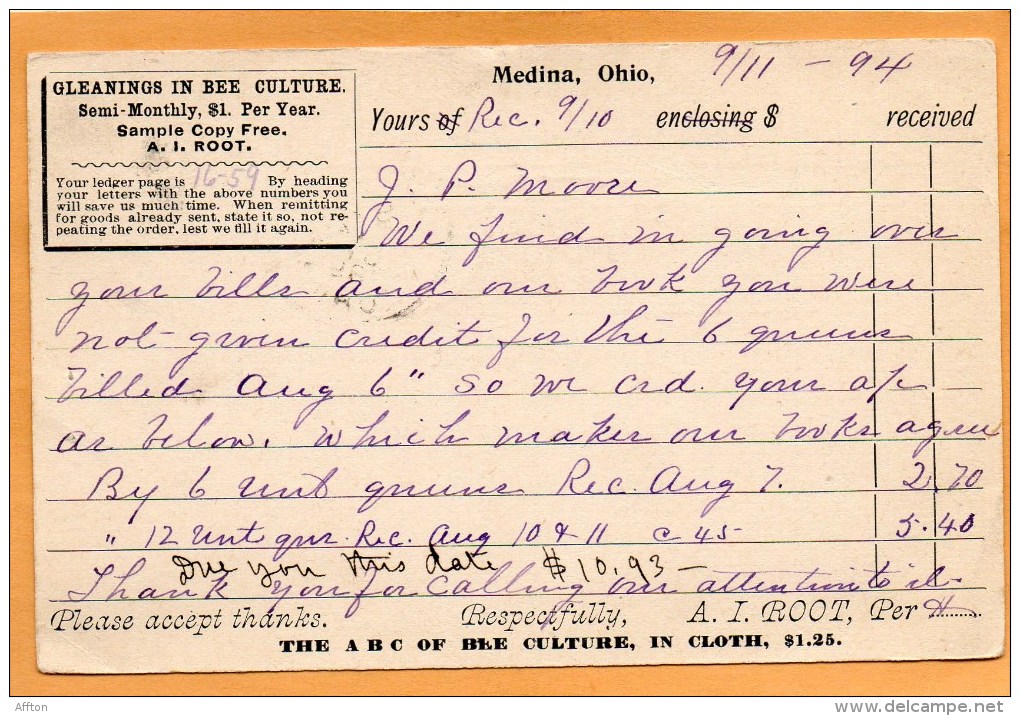 GLEANINGS IN BEE CULTURE.
Semi-Monthly, $1. Per Year.
Sample Copy Free.
A. I. ROOT.
Your ledger page is 16-59 By heading
your letters with the above numbers you
will save us much time. When remitting
for goods already sent, state it so, not re-
peating the order, lest we fill it again.
Medina, Ohio, 9/11 - 94
Yours of Rec. 9/10 enclosing $ received
J. P. Moore
We find in going over
your bills and our book you were
not given credit for the 6 queens
billed Aug 6" so we crd. your a/c
as below. Which makes our books agree
By 6 unt queens Rec. Aug 7. 2.70
" 12 unt qns. Rec. Aug 10 & 11 c 45 5.40
Due you this date $10.93 -
Thank you for calling our attention to it.
Please accept thanks. Respectfully, A. I. ROOT, Per H
THE A B C OF BEE CULTURE, IN CLOTH, $1.25.
Affton
www.delcampe.net